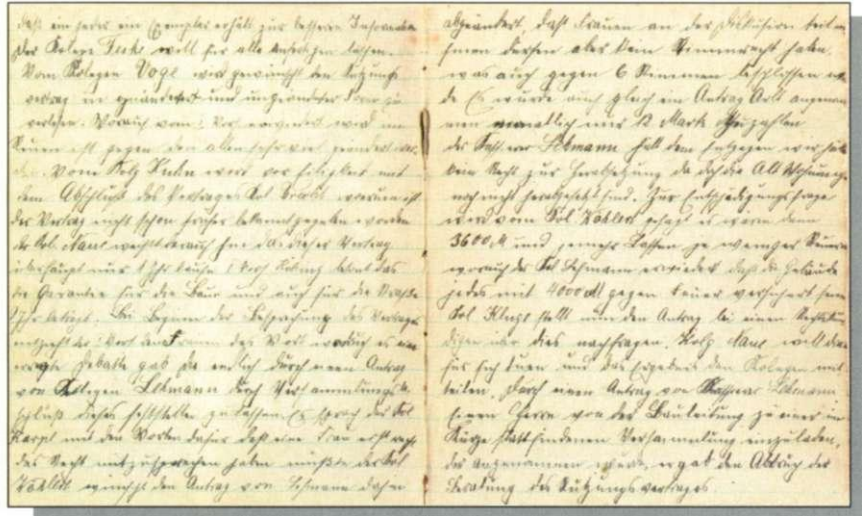 daß ein jeder ein Exemplar erhält zur besseren Information
Der Kolege Fecke will für alle anfertigen lassen.
Vom Kolegen Vogl wird gewünscht den Nutzungs
vertrag in geänderter und ungeänderter Form zu
verlesen. Worauf vom 1 Vors erwiedert wird im
Neuen ist gegen den alten sehr viel geändert wor
den. Vom Kolg Kuhn wird vor
dem Abschluß des Vertrages Kol warum ist
der Vertrag nicht schon früher bekanntgegeben worden
der Kol. Naue weist darauf hin da dieser Vertrag
überhaupt nur 1 Jhr
die Garantie für die Baur und auch für die Straße
1 Jhr beträgt. Bei Beginn der Besprechung des Vertrages
entzieht der 1 Vors den Frauen das Wort wodurch es eine
erregte Debatte gab die endlich durch einen Antrag
von Kollegen Lehmann durch Versammlungsbe
schluß dieses feststellen zu lassen. Es sprach der Kol
Karpf mit den Worten dafür daß eine Frau erst recht
das Recht mitzusprechen haben müßte der Kol
Köhler wünscht den Antrag von Lehmann dahin
abgeändert, daß Frauen an der Diskusion teil
nemen dürfen aber kein Stimmrecht haben.
was auch gegen 6 Stimmen beschlossen wur
de Es wurde auch gleich ein Antrag angenom
men monatlich nur 12 Mark zuzahlen
der Kol Lehmann hält dem entgegen wir haben
kein Recht zur Herabsetzung da doch die Alt Wohnung
noch nicht herabgesetzt sind. Zur Entschädigungsfrage
wird vom Kol Köhler gesagt es wären dann
3600 M und jemehr Lasten je weniger
worauf der Kol Lehmann erwiedert daß die Gebäude
jedes mit 4000 M gegen Feuer versichert sein
Kol. Kluge stellt nun den Antrag bei einem
digen wir dies nachfragen. Kolg Naue will dies
für sich tuen und das Ergebnis den Kolegen mit
teilen. Durch einen Antrag von Lehmann
Einen Herrn von der Bauleitung zu einer in
Kürze stattfindenen Versammlung einzuladen,
der angenommen wurde, ergab den Abbruch der
Beratung des Nutzungsvertrages.